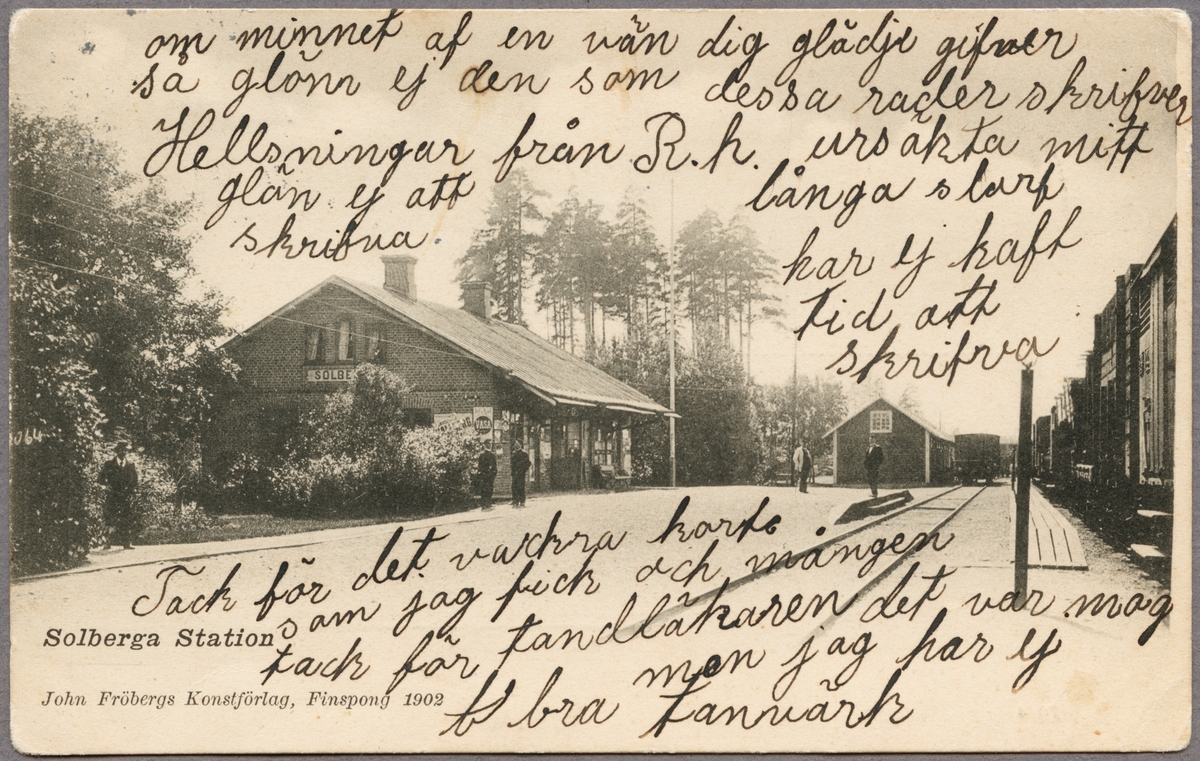 om minnet af en vän dig glädje gifver
så glöm ej den som dessa rader skrifver
Hellsningar från R.h. ursäkta mitt
långa slarf
har ej haft
tid att
skrifva
glön ej att
skrifva
SOLBE
1064
Tack för det vackra korte
som jag fick och mången
tack för tandläkaren det var mog
men jag har ej
bra tanvärk
Solberga Station
John Fröbergs Konstförlag, Finspong 1902